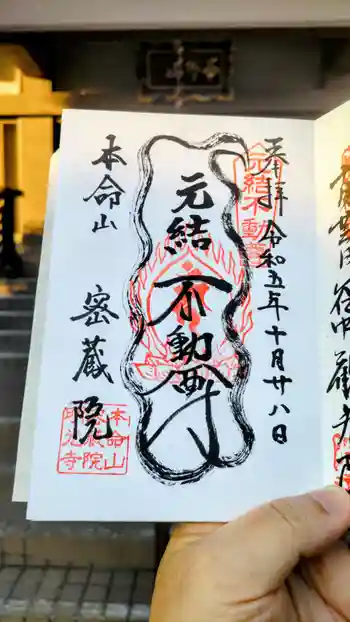 奉拝 令和五年十月廿八日
元結不動尊
元結
不動尊
本命山 密蔵院
本命山
密蔵院